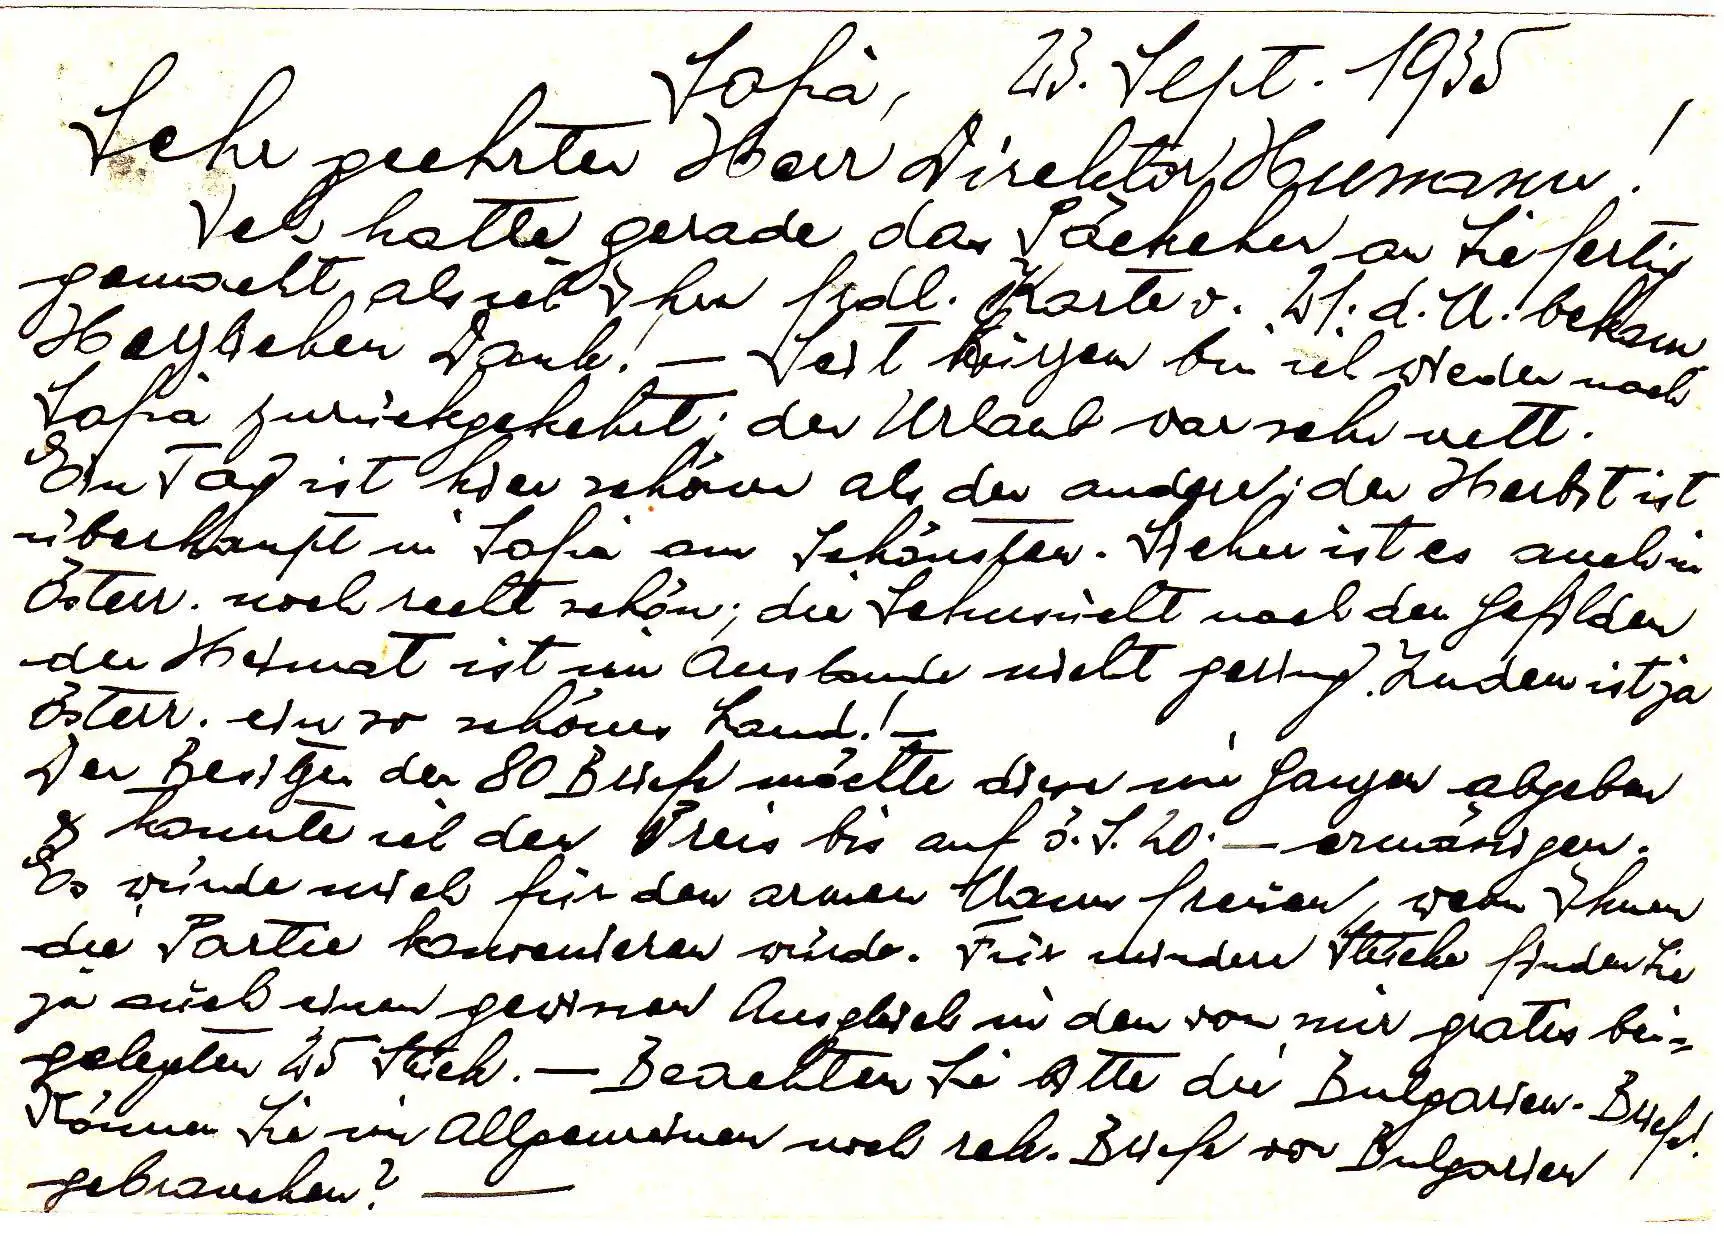 Sofia, 23. Sept. 1935
Sehr geehrter Herr Direktor Humann!
Ich hatte gerade das Päckchen an Sie fertig
gemacht, als ich Ihre frdl. Karte v. 21. d. M. bekam.
Herzlichen Dank! — Seit kurzem bin ich wieder nach
Sofia zurückgekehrt; der Urlaub war sehr nett.
Ein Tag ist hier schöner als der andere; der Herbst ist
überhaupt in Sofia am Schönsten. Sicher ist es auch in
Österr. noch recht schön; die Sehnsucht nach den Gefilden
der Heimat ist im Auslande nicht gering. Zudem ist ja
Österr. ein so schönes Land! —
Der Besitzer der 80 Briefe möchte diese im Ganzen abgeben
& konnte ich den Preis bis auf ö. S. 20.— ermässigen.
Es würde mich für den armen Mann freuen, wenn Ihnen
die Partie konvenieren würde. Für mindere Stücke finden Sie
ja auch einen gewissen Ausgleich in den von mir gratis bei-
gelegten 25 Stück. — Beachten Sie bitte die Bulgarien-Briefe!
Können Sie im Allgemeinen noch rek. Briefe von Bulgarien
gebrauchen? —